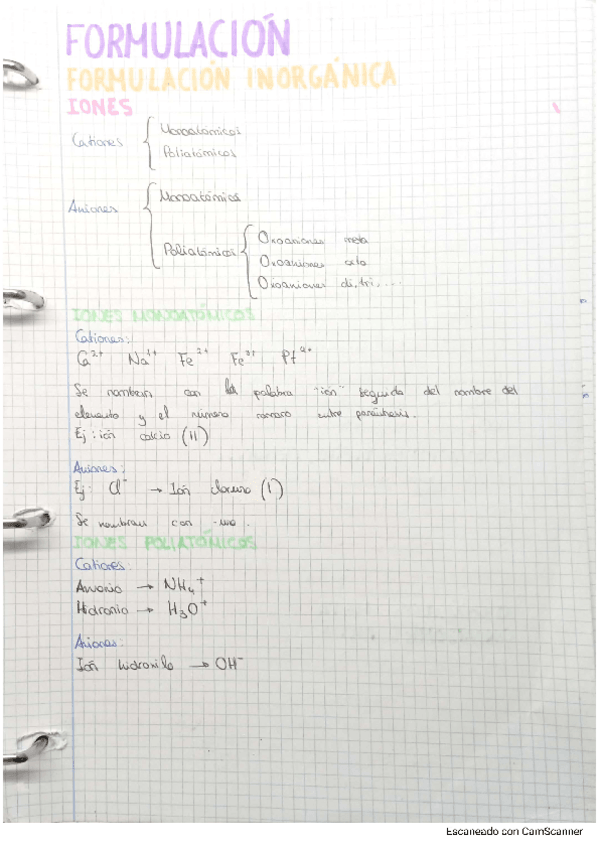 FORMULACIÓN
FORMULACIÓN INORGÁNICA
IONES
Cationes
Monoatómicos
Poliatómicos
Aniones
Monoatómicos
Poliatómicos
Oxoaniones meta
Oxoaniones orto
Oxoaniones di, tri, ...
IONES MONOATÓMICOS
Cationes:
Ca²⁺ Na¹⁺ Fe²⁺ Fe³⁺ Pt⁴⁺
Se nombran con la palabra "ión" seguida del nombre del
elemento y el número romano entre paréntesis.
Ej: ión calcio (II)
Aniones:
Ej: Cl⁻ → Ión cloruro (I)
Se nombran con -uro.
IONES POLIATÓMICOS
Cationes:
Amonio → NH₄⁺
Hidronio → H₃O⁺
Aniones:
Ión hidroxilo → OH⁻
Escaneado con CamScanner